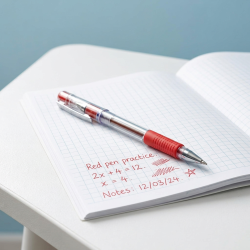 Red pen practice
2x + 4 = 12.
x = 4.
Notes: 12/03/24